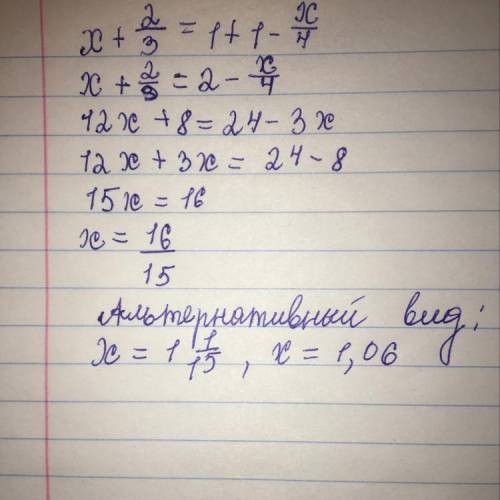 x + 2/3 = 1 + 1 - x/4
x + 2/3 = 2 - x/4
12x + 8 = 24 - 3x
12x + 3x = 24 - 8
15x = 16
x = 16/15
Альтернативный вид:
x = 1 1/15, x = 1,06